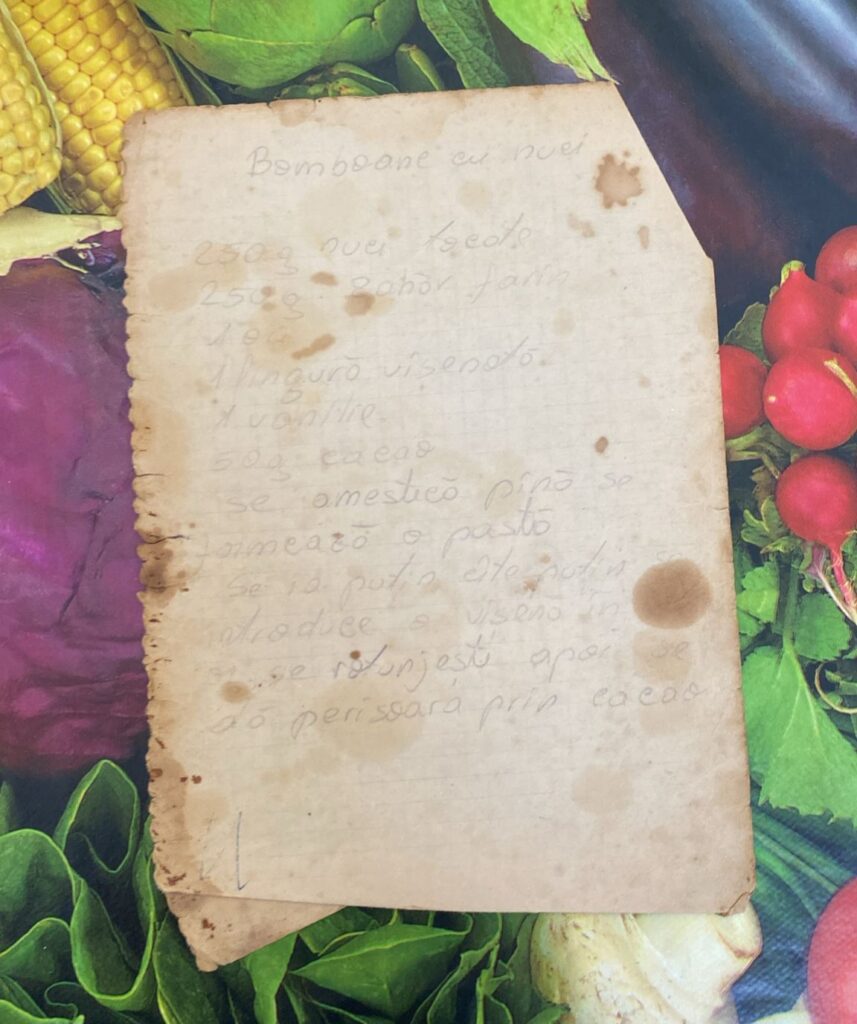 Bomboane cu nuci
250g nuci tocate
250g zahăr farin
1 ou
1 lingură visenată
1 vanilie
50g cacao
se amestică pînă se
formează o pastă
Se ia puțin cîte puțin
introduce o visenă în
se rotunjești apoi se
dă perisoară prin cacao